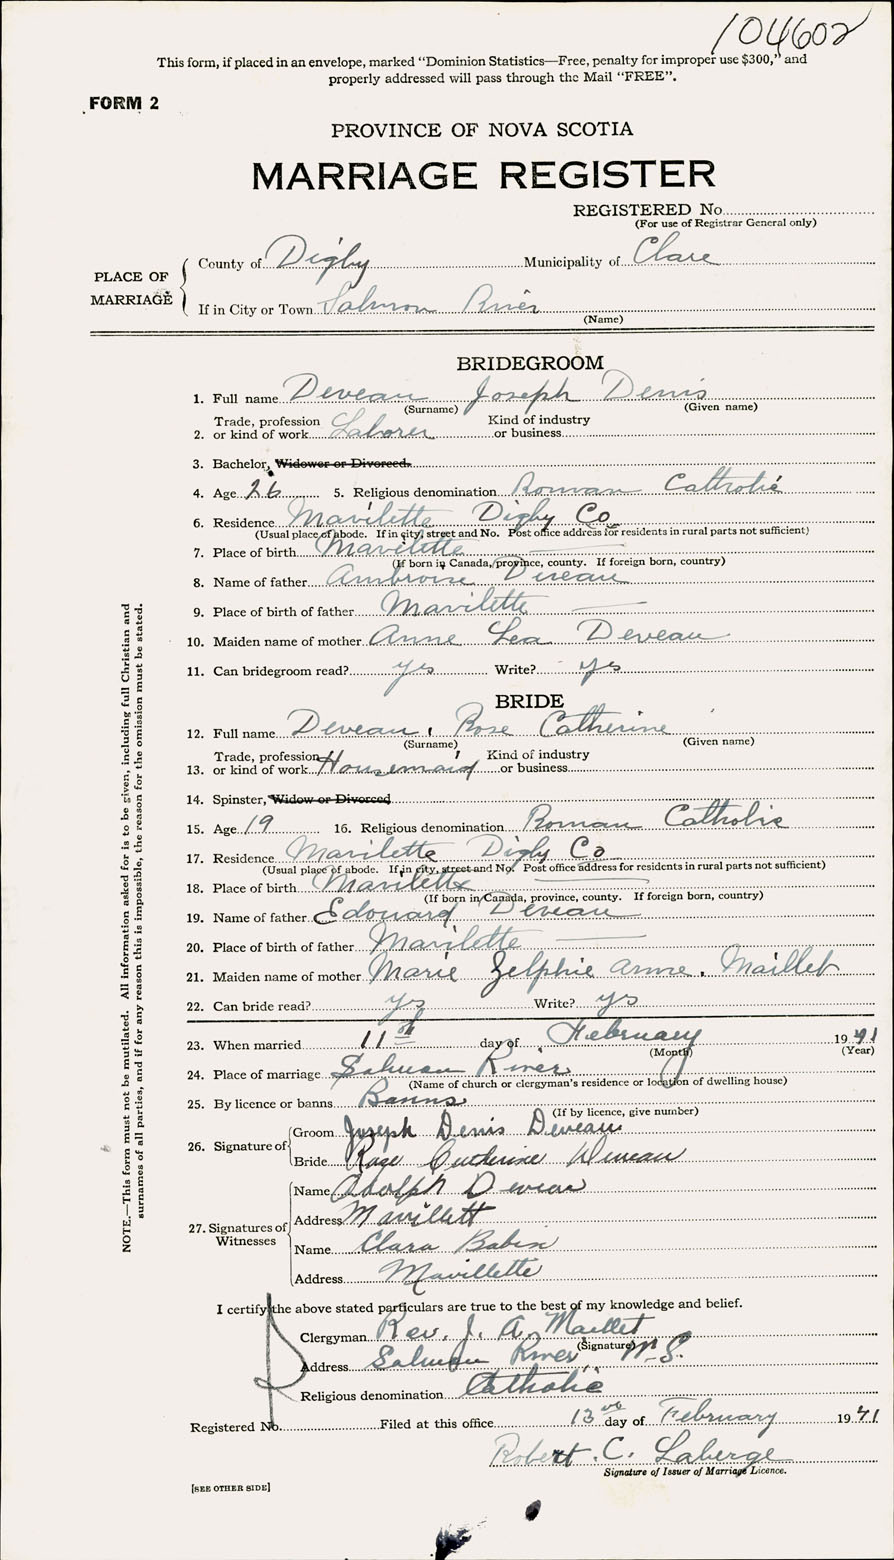 104602
This form, if placed in an envelope, marked "Dominion Statistics—Free, penalty for improper use $300," and
properly addressed will pass through the Mail "FREE".
FORM 2
PROVINCE OF NOVA SCOTIA
MARRIAGE REGISTER
REGISTERED No.
(For use of Registrar General only)
PLACE OF MARRIAGE
County of Digby Municipality of Clare
If in City or Town Salmon River
(Name)
BRIDEGROOM
1. Full name Deveau Joseph Denis
(Surname) (Given name)
Trade, profession Kind of industry
2. or kind of work Laborer or business
3. Bachelor, Widower or Divorced.
4. Age 26 5. Religious denomination Roman Catholic
6. Residence Mavilette Digby Co
(Usual place of abode. If in city, street and No. Post office address for residents in rural parts not sufficient)
7. Place of birth Mavilette
(If born in Canada, province, county. If foreign born, country)
8. Name of father Ambroise Deveau
9. Place of birth of father Mavilette
10. Maiden name of mother Anne Lea Deveau
11. Can bridegroom read? yes Write? yes
BRIDE
12. Full name Deveau, Rose Catherine
(Surname) (Given name)
Trade, profession Kind of industry
13. or kind of work Housemaid or business
14. Spinster, Widow or Divorced
15. Age 19 16. Religious denomination Roman Catholic
17. Residence Mavilette Digby Co
(Usual place of abode. If in city, street and No. Post office address for residents in rural parts not sufficient)
18. Place of birth Mavilette
(If born in Canada, province, county. If foreign born, country)
19. Name of father Edouard Deveau
20. Place of birth of father Mavilette
21. Maiden name of mother Marie Zelphie Anne. Maillet
22. Can bride read? yes Write? yes
23. When married 11th day of February 1941
(Month) (Year)
24. Place of marriage Salmon River
(Name of church or clergyman's residence or location of dwelling house)
25. By licence or banns Banns
(If by licence, give number)
26. Signature of
Groom Joseph Denis Deveau
Bride Rose Catherine Deveau
27. Signatures of Witnesses
Name Adolph Deveau
Address Mavillett
Name Clara Babin
Address Mavillette
I certify the above stated particulars are true to the best of my knowledge and belief.
Clergyman Rev. J. A. Maillet
(Signature)
Address Salmon River N.S.
Religious denomination Catholic
Registered No. Filed at this office 13th day of February 1941
Robert. C. Laberge
Signature of Issuer of Marriage Licence.
[SEE OTHER SIDE]
NOTE.—This form must not be mutilated. All information asked for is to be given, including full Christian and
surnames of all parties, and if for any reason this is impossible, the reason for the omission must be stated.